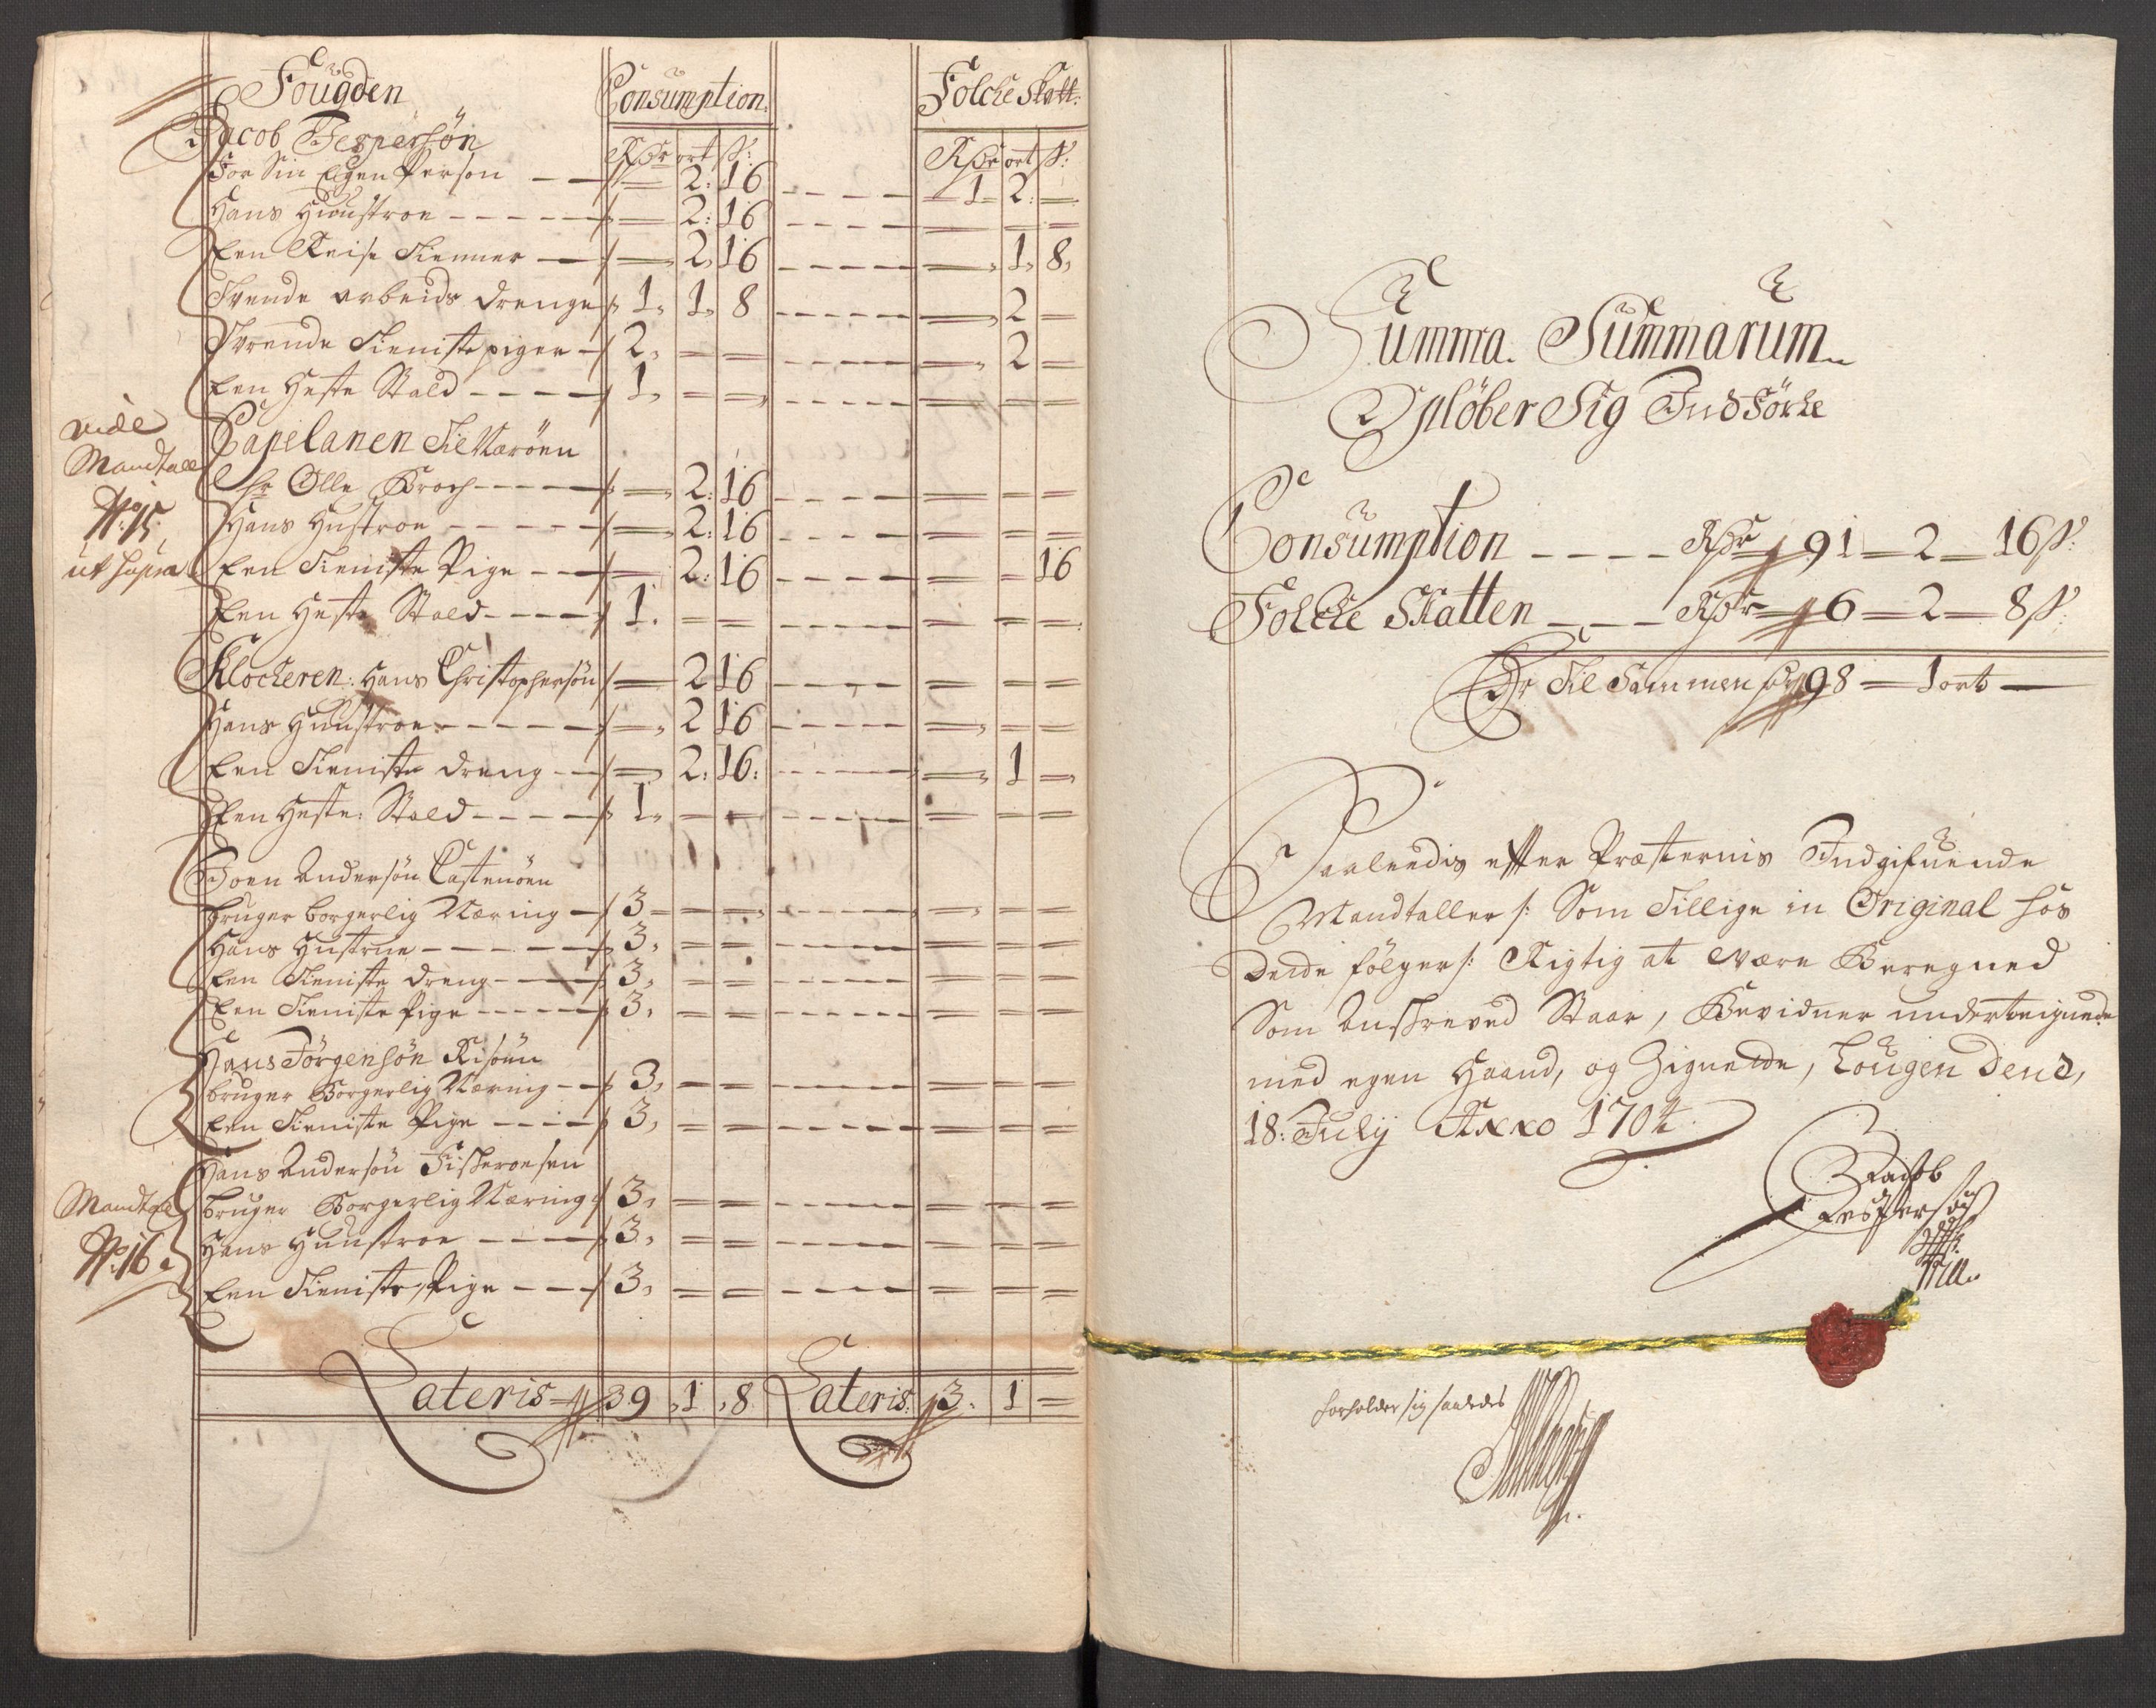 Fougden Consumption. Folche Skatt:
Jacob Jespersøn Rdr ort ß: Rdr ort ß:
For Sin Egen Person 2: 16 1 2:
Hans Huustroe 2: 16
Een Reise Tienner 2, 16 1, 8,
Tvende arbeids drenge 1, 1, 8 2
Tvende Tieniste piger 2, 2
Een Heste Stald 1,
vide
Mandtall
No: 15,
ut supra
Capelanen Til Nærøen
Hr Olle 2: 16
Hans Hustroe 2: 16
Een Tieniste Pige 2: 16 16
Een Heste Stald 1.
Klocheren: Hans Christophersøn 2 16
Hans Huustroe 2 16
Een Tieniste dreng 2: 16: 1
Een Heste: Stald 1,
Joen Andersøn
bruger borgerlig Næring 3
Hans Hustrue 3,
Een Tieniste dreng 3,
Een Tieniste Pige 3,
Hans Jörgensøn Risøen
bruger Borgerlig Næring 3,
Een Tieniste Pige 3,
Mandtall
No: 16
Hans Andersøn
bruger Borgerlig Næring 3,
Hans Huustroe 3,
Een Tieniste Pige 3,
Lateris 39, 1, 8 Lateris: 3. 1
Summa. Summarum
Opløber Sig Ind Förte
Consumption Rdr 91 2 16 ß:
Folche Skatten Rdr 6 2 8 ß:
Er Til Sammen 98 1 ort
Saaleedis efter Præsternis Indgifuende
Mandtaller /: Som Tillige in Original hos
følger :/ Rigtig at være Beregned
Som Anskreved Staar, Bevidner underteignede
med egen Haand, og Zignette, Lougen Dend,
18: July Anno 1704
Jacob
Jespersøn
forholder sig saaledes